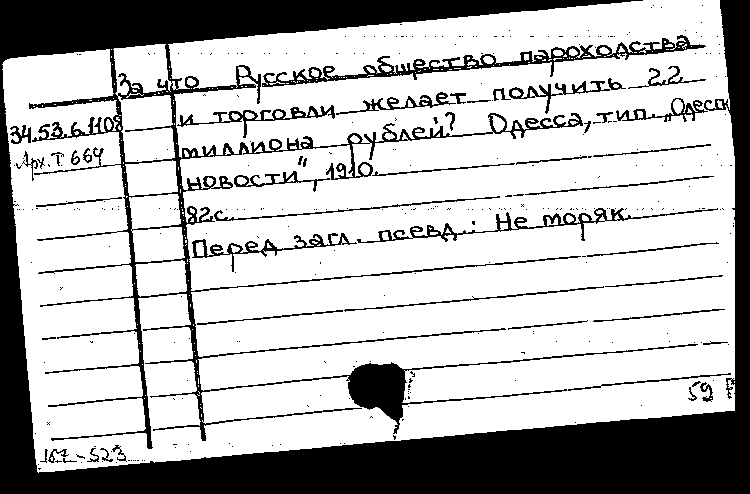 За что Русское общество пароходства
и торговли желает получить 22
34.53.6.1108
миллиона рублей? Одесса, тип. „Одесск
Арх. Т 664
новости", 1910.
82с.
Перед загл. псевд.: Не моряк.
59
167-523